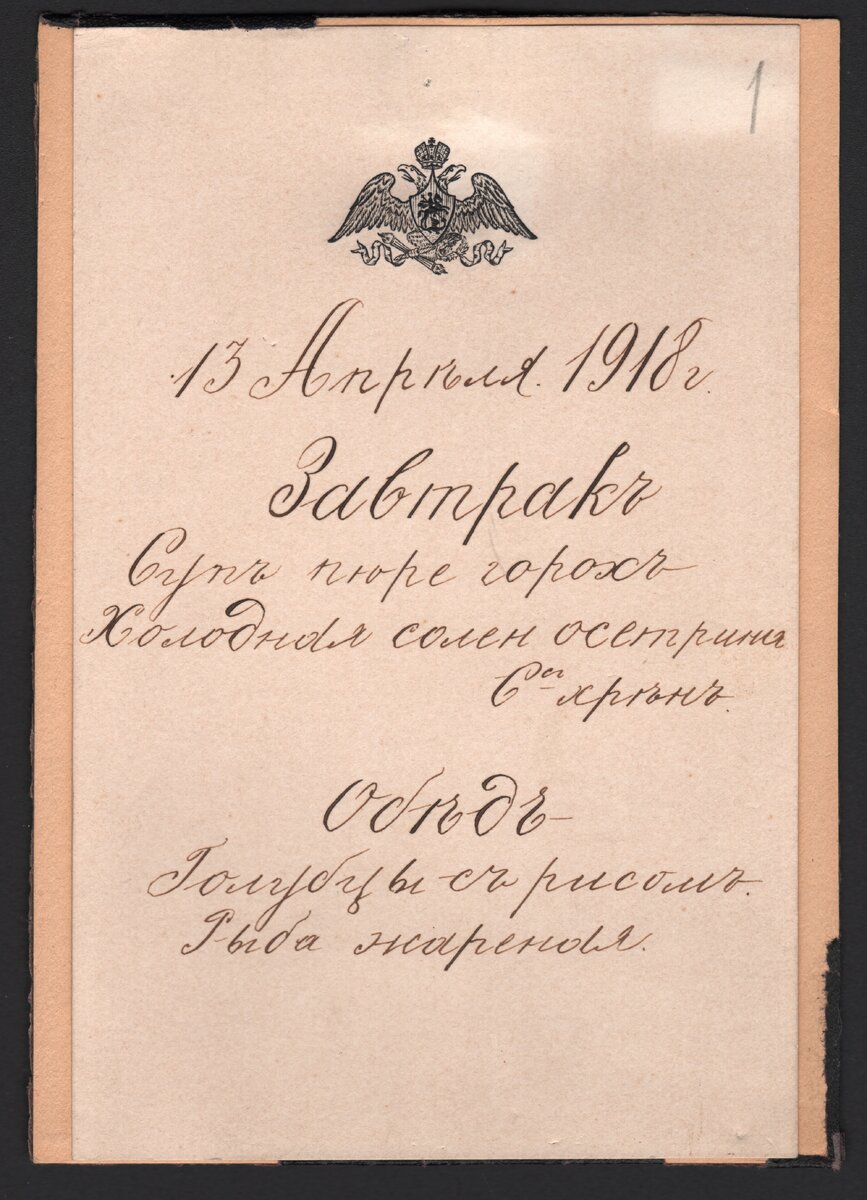 1
13 Апрѣля. 1918 г.
Завтракъ
Супъ пюре горохъ
Холодная солен осетрина
Съ хрѣнъ.
Обѣдъ
Голубцы съ рисомъ.
Рыба жареная.